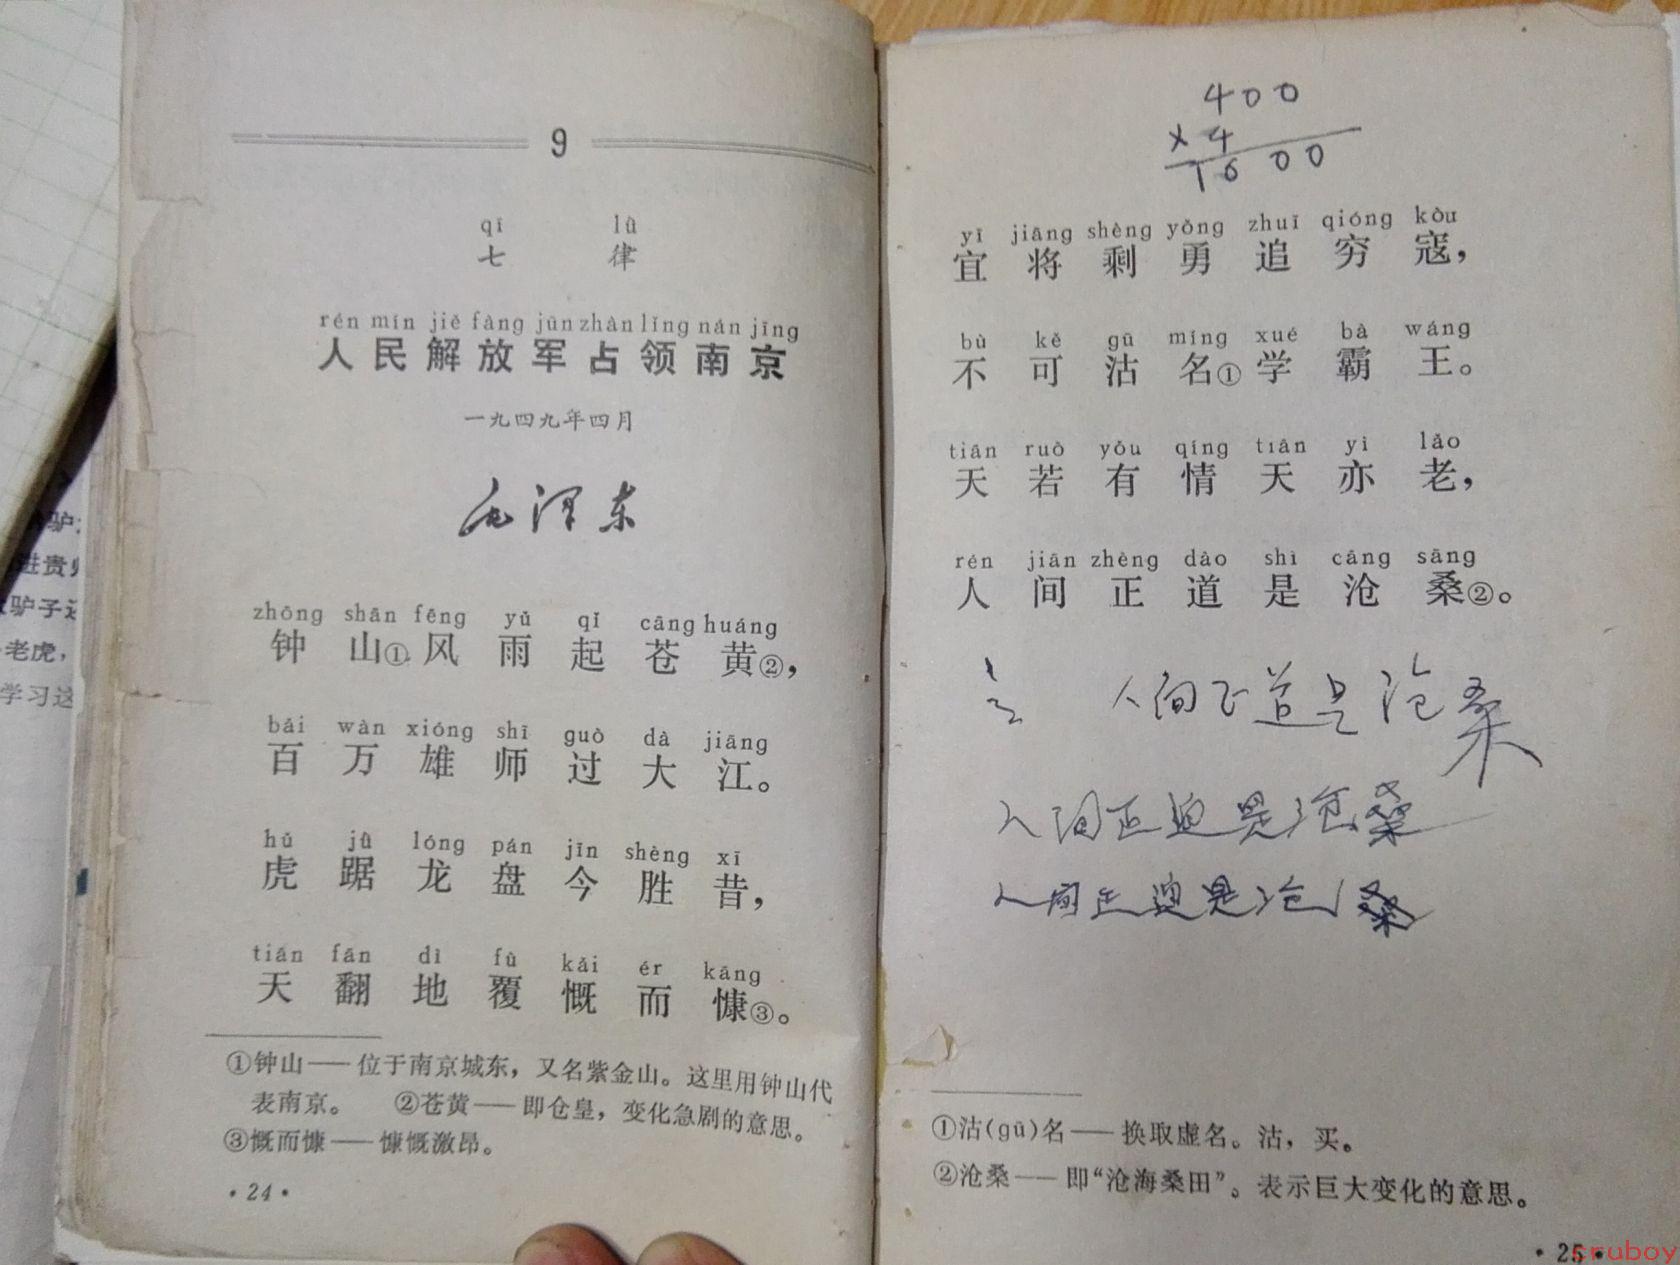 9
qī lǜ
七 律
rén mín jiě fàng jūn zhàn lǐng nán jīng
人民解放军占领南京
一九四九年四月
毛泽东
zhōng shān fēng yǔ qǐ cāng huáng
钟山①风雨起苍黄②，
bǎi wàn xióng shī guò dà jiāng
百万雄师过大江。
hǔ jù lóng pán jīn shèng xī
虎踞龙盘今胜昔，
tiān fān dì fù kǎi ér kāng
天翻地覆慨而慷③。
①钟山——位于南京城东，又名紫金山。这里用钟山代
表南京。 ②苍黄——即仓皇，变化急剧的意思。
③慨而慷——慷慨激昂。
·24·
400
×4
1600
yí jiāng shèng yǒng zhuī qióng kòu
宜将剩勇追穷寇，
bù kě gū míng xué bà wáng
不可沽名①学霸王。
tiān ruò yǒu qíng tiān yì lǎo
天若有情天亦老，
rén jiān zhèng dào shì cāng sāng
人间正道是沧桑②。
人间正道是沧桑
人间正道是沧桑
人间正道是沧桑
①沽(gū)名——换取虚名。沽，买。
②沧桑——即“沧海桑田”。表示巨大变化的意思。
·25·
cruboy
驴
进贵州
驴子还
老虎，
学习这